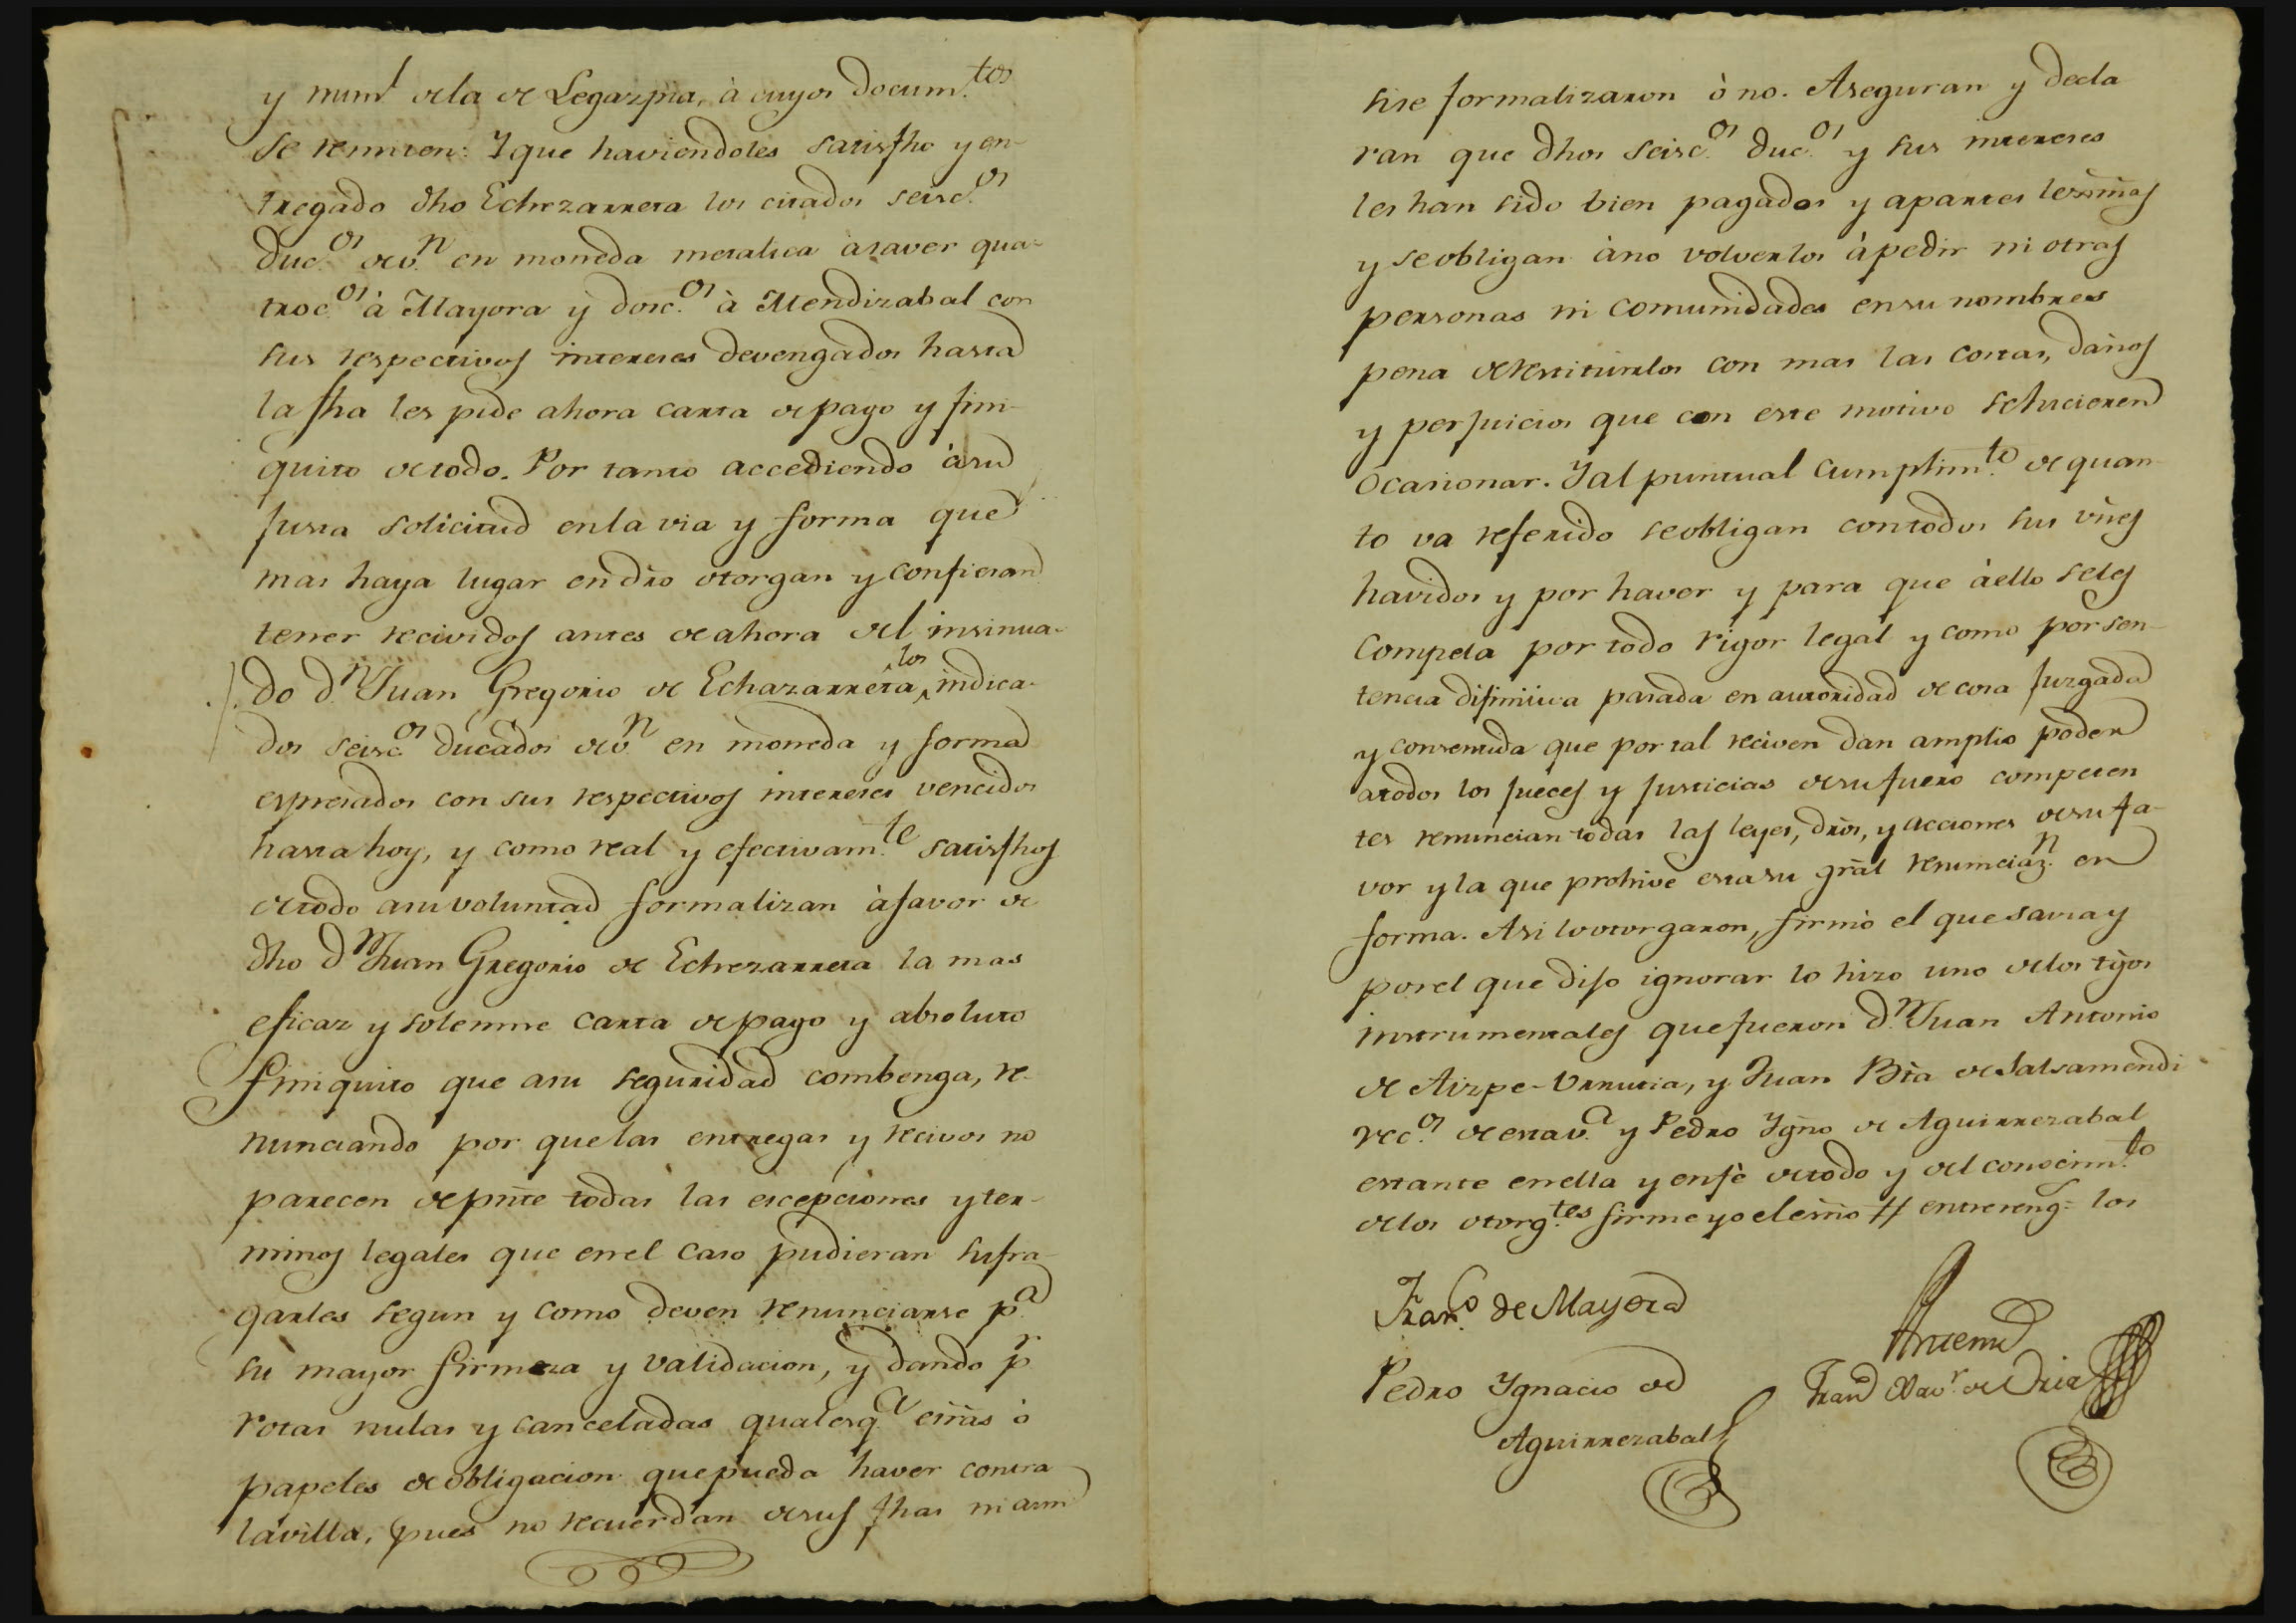 y num.l de la de Legazpia, à cuyos docum.tos
se remiten: Y que haviendoles satisfho y en-
tregado dho Echezarreta los citados seisc.os
duc.os de v.n en moneda metalica à saver qua-
troc.os à Mayora y dosc.os à Mendizabal con
sus respectivos intereses devengados hasta
la fha les pide ahora carta de pago y fini-
quito de todo. Por tanto accediendo à su
justa solicitud en la via y forma que
mas haya lugar en dro otorgan y confiesan
tener recividos antes de ahora del insinua-
do d.n Juan Gregorio de Echazarreta los indica-
dos seisc.os ducados de v.n en moneda y forma
espresados con sus respectivos intereses vencidos
hasta hoy, y como real y efectivam.te satisfhos
de todo a su voluntad formalizan à favor de
dho d.n Juan Gregorio de Echezarreta la mas
eficaz y solemne carta de pago y absoluto
finiquito que a su seguridad combenga, re-
nunciando por que las entregas y recivos no
parecen de pñte todas las escepciones y ter-
minos legales que en el caso pudieran sufra-
garles segun y como deven renunciarse p.a
su mayor firmeza y validacion, y dando p.r
rotas nulas y canceladas qualesq.a esñas ò
papeles de obligacion que pueda haver contra
la villa, pues no recuerdan de sus fhas ni aun
si se formalizaron ò no. Aseguran y decla
ran que dhos seisc.os duc.os y sus intereses
les han sido bien pagados y a partes lexmas
y se obligan à no volverlos à pedir ni otras
personas ni comunidades en su nombre
pena de restituirlos con mas las costas, daños
y perjuicios que con este motivo se hicieren
ocasionar. Y al puntual cumplim.to de quan
to va referido se obligan con todos sus vñes
havidos y por haver y para que à ello se les
compela por todo rigor legal y como por sen-
tencia difinitiva pasada en autoridad de cosa juzgada
y consentida que por tal reciven dan amplio poder
a todos los jueces y justicias de su fuero competen
tes renuncian todas las leyes, dros, y acciones de su fa-
vor y la que prohive esta su gral renunciaz.n en
forma. Asi lo otorgaron, firmò el que savia y
por el que dijo ignorar lo hizo uno de los tgos
instrumentales que fueron d.n Juan Antonio
de Aizpe-Urrutia, y Juan Bta de Salsamendi
vec.os de esta v.a y Pedro Ygno de Aguirrezabal
estante en ella y en fè de todo y del conocim.to
de los otorg.tes firme yo el esño // entrereng.s los
Fran.co de Mayora
Antemi
Pedro Ygnacio de
Fran.co Xav.r de Oria
Aguirrezabal